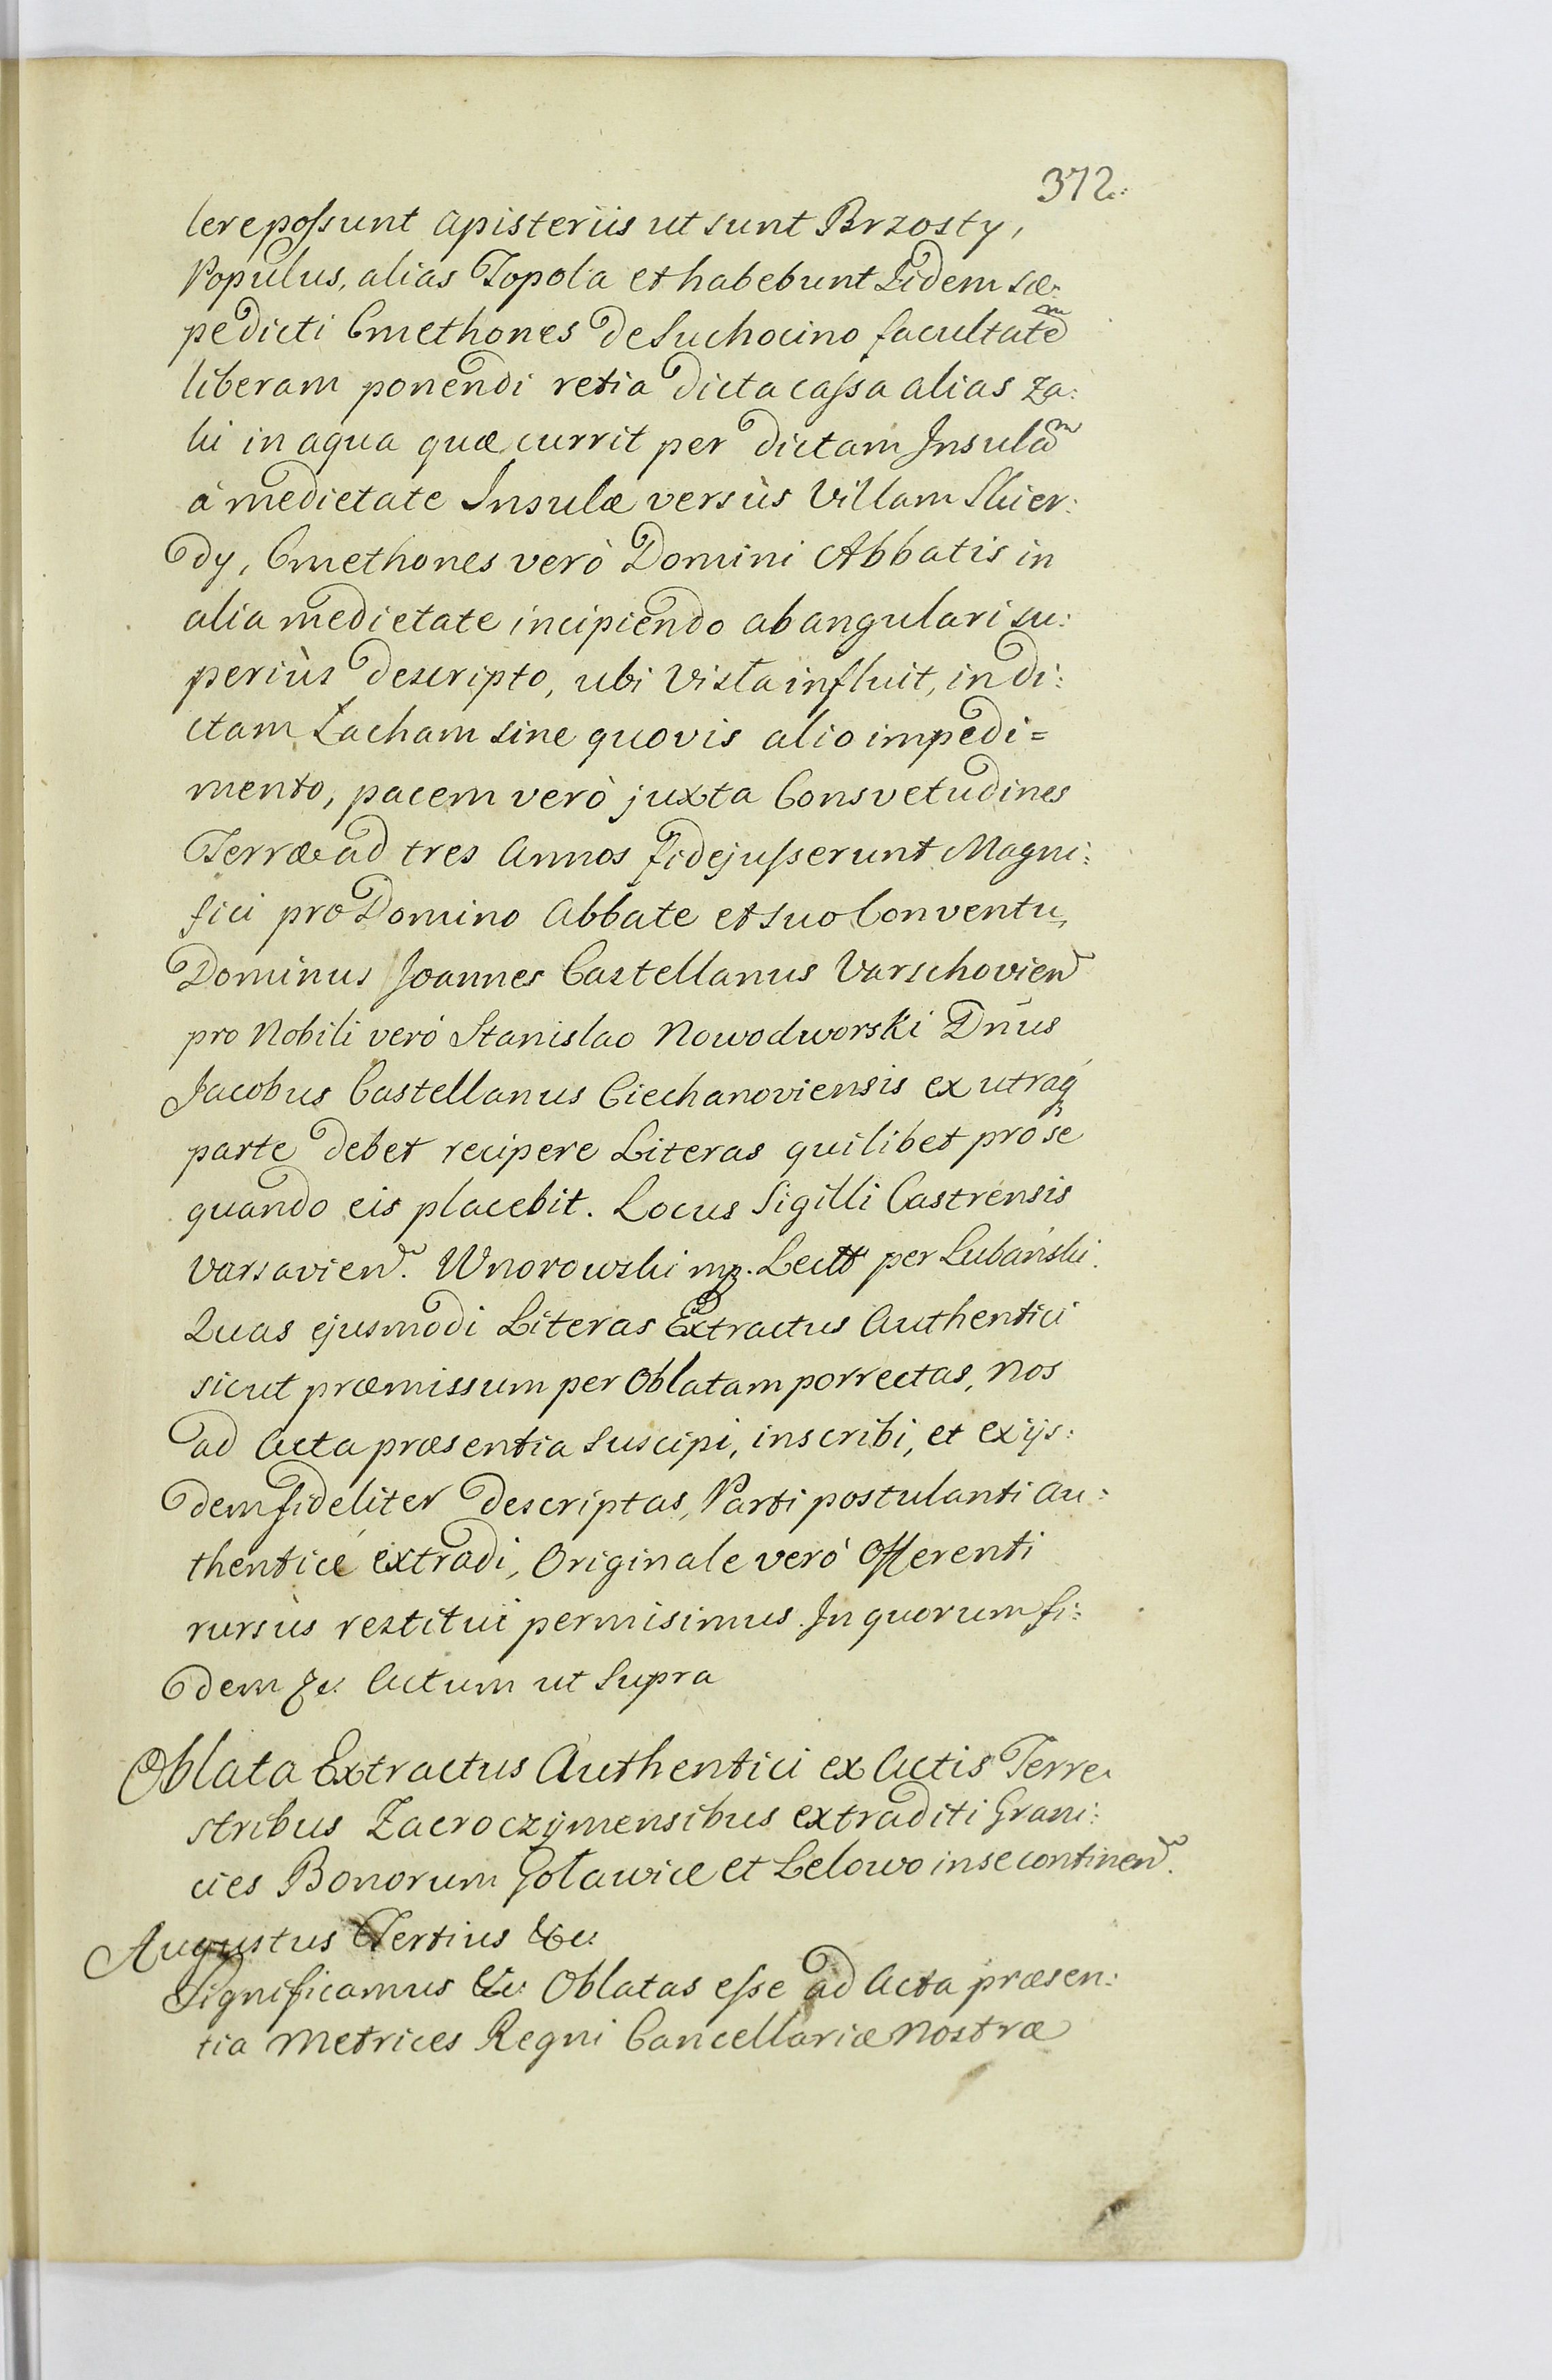 372.
lere possunt apisteriis ut sunt Brzosty,
Populus, alias Topola et habebunt Iidem sæ:
pe dicti Cmethones de Suchocino facultatem
liberam ponendi retia dicta cassa alias Za:
ki in aqua quæ currit per dictam Insulam
à medietate Insulæ versùs Villam Skier:
dy, Cmethones verò Domini Abbatis in
alia medietate incipiendo ab angulari su:
periùs descripto, ubi Visla influit, in di:
ctam Łacham sine quovis alio impedi=
mento, pacem verò juxta Consvetudines
Terræ ad tres Annos fidejusserunt Magni:
fici pro Domino Abbate et suo Conventu,
Dominus Joannes Castellanus Varschovien
pro Nobili verò Stanislao Nowodworski Dnus
Jacobus Castellanus Ciechanoviensis ex utraq
parte debet recipere Literas quilibet pro se
quando eis placebit. Locus Sigilli Castrensis
Varsavien. Wnorowski mp. Lectt per Lubański.
Quas ejusmodi Literas Extractus Authentici
sicut præmissum per Oblatam porrectas, Nos
ad Acta præsentia suscipi, inscribi, et ex ijs:
dem fideliter descriptas, Parti postulanti au:
thenticè extradi, Originale verò Offerenti
rursùs restitui permisimus. In quorum fi:
dem &c. Actum ut supra
Oblata Extractus Authentici ex Actis Terre
stribus Zacroczymensibus extraditi Grani:
cies Bonorum Goławice et Lelowo in se continen.
Augustus Tertius &c.
Significamus &c. Oblatas esse ad Acta præsen:
tia Metrices Regni Cancellariæ Nostræ